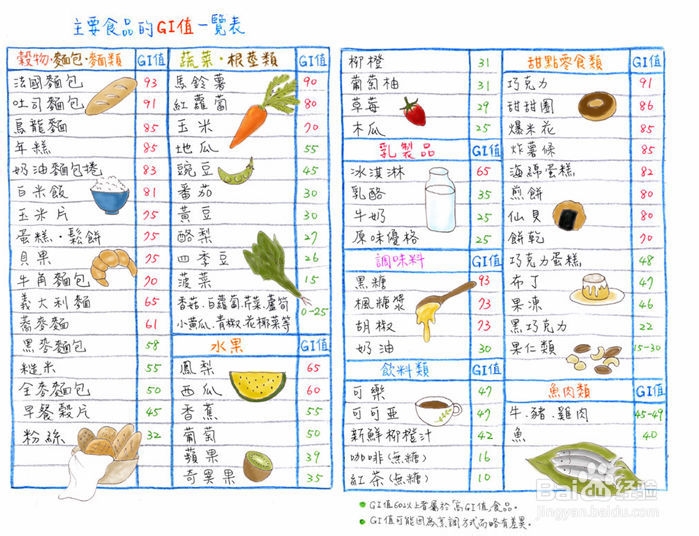 主要食品的GI值一覽表
穀物·麵包·麵類 GI值
法國麵包 93
吐司麵包 91
烏龍麵 85
年糕 85
奶油麵包捲 83
白米飯 81
玉米片 75
蛋糕·鬆餅 75
貝果 75
牛角麵包 70
義大利麵 65
蕎麥麵 61
黑麥麵包 58
糙米 55
全麥麵包 50
早餐穀片 45
粉絲 32
蔬菜·根莖類 GI值
馬鈴薯 90
紅蘿蔔 80
玉米 70
地瓜 55
豌豆 45
番茄 30
黃豆 30
酪梨 27
四季豆 26
菠菜 15
香菇、白蘿蔔、芹菜、蘆筍
小黃瓜、青椒、花椰菜等 0-25
水果 GI值
鳳梨 65
西瓜 60
香蕉 55
葡萄 50
蘋果 39
奇異果 35
柳橙 31
葡萄柚 31
草莓 29
木瓜 25
乳製品 GI值
冰淇淋 65
乳酪 35
牛奶 25
原味優格 25
調味料 GI值
黑糖 93
楓糖漿 73
胡椒 73
奶油 30
飲料類 GI值
可樂 47
可可亞 47
新鮮柳橙汁 42
咖啡(無糖) 16
紅茶(無糖) 10
甜點零食類 GI值
巧克力 91
甜甜圈 86
爆米花 85
炸薯條 85
海綿蛋糕 82
煎餅 80
仙貝 80
餅乾 70
巧克力蛋糕 48
布丁 47
果凍 46
黑巧克力 22
果仁類 15-30
魚肉類 GI值
牛、豬、雞肉 45-49
魚 40
GI值60以上者屬於高GI值食品。
GI值可能因為烹調方式而略有差異。
Baidu经验
jingyan.baidu.com